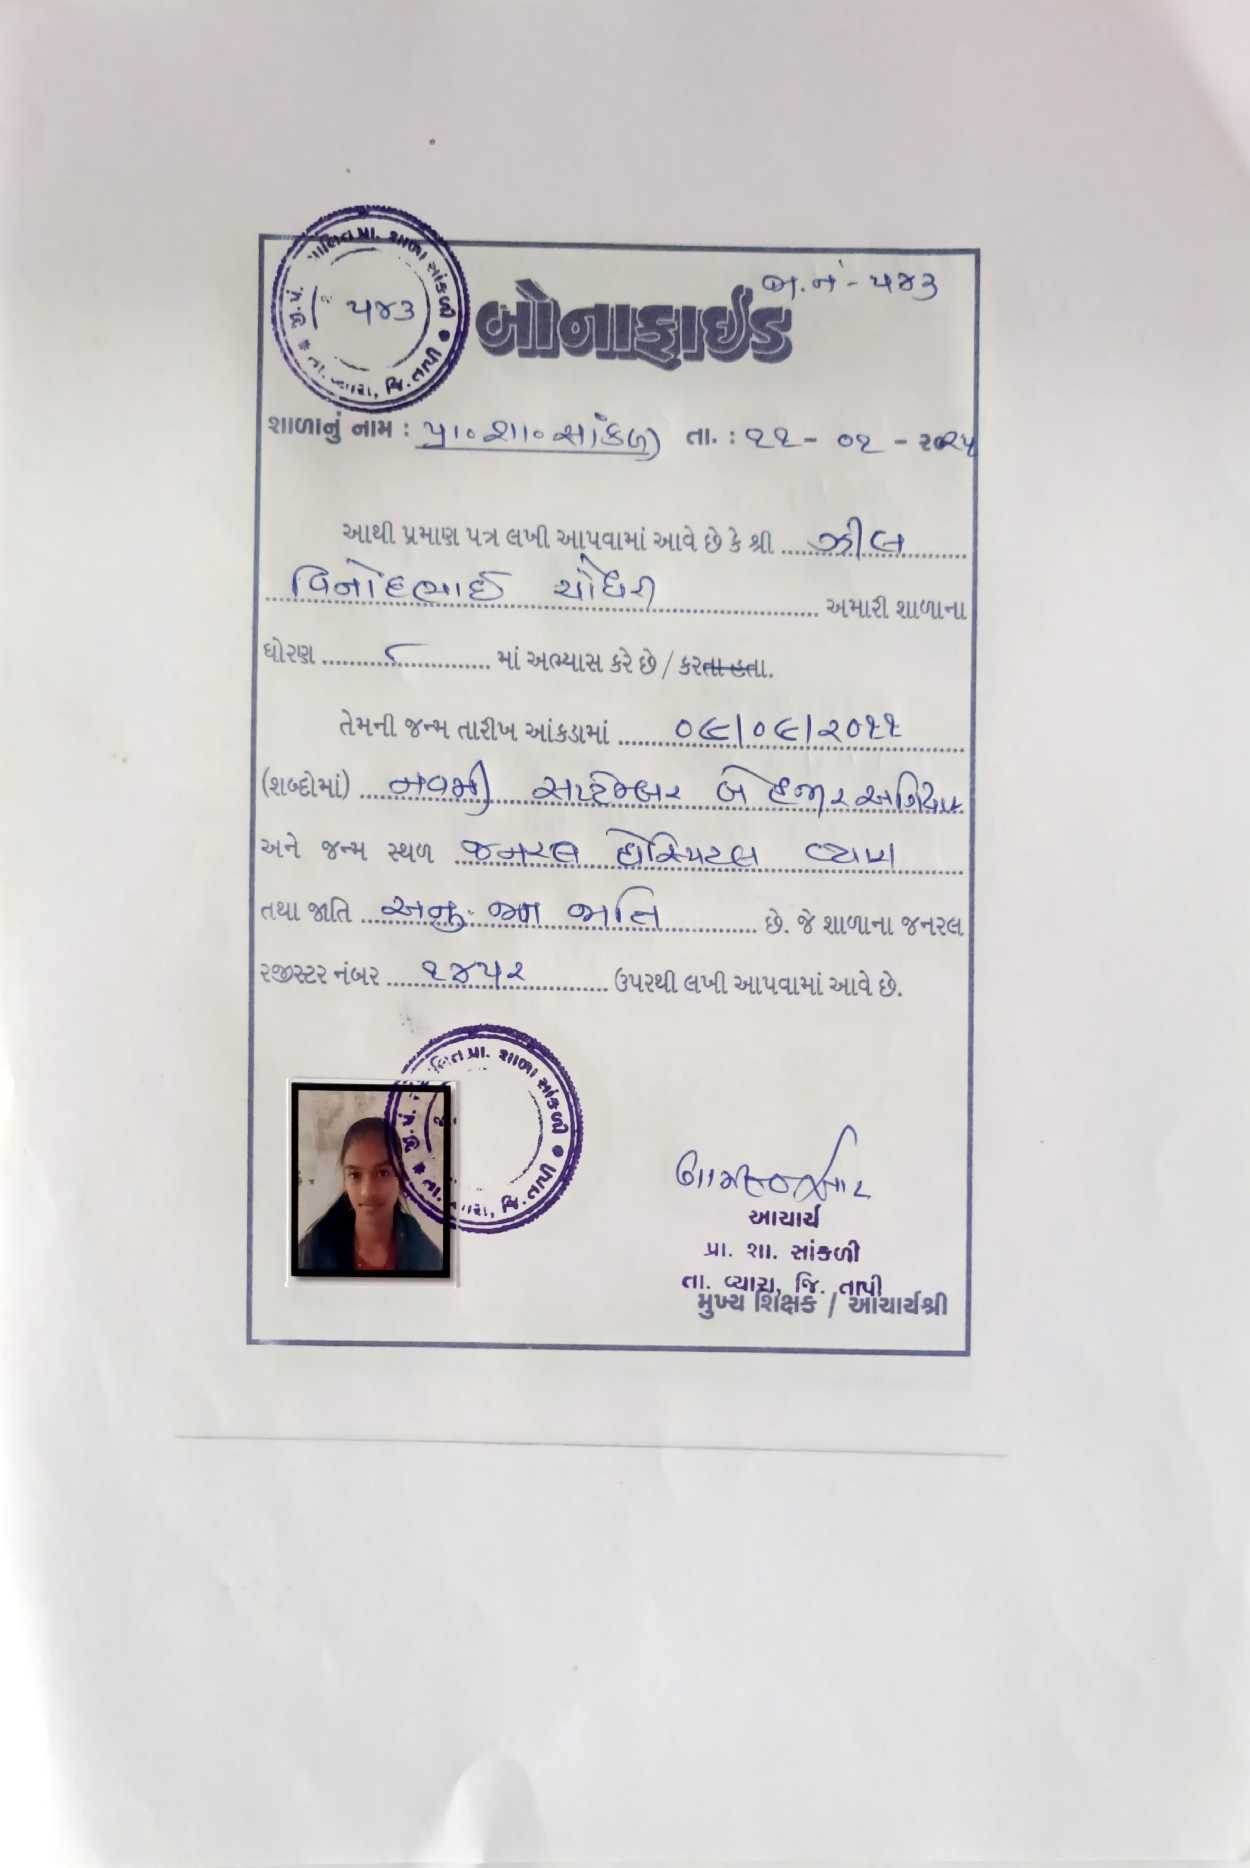 જી. પં. ... પ્રા. શાળા સાંકળી
૫૪૩
તા. વ્યારા, જિ. તાપી
બ.નં - ૫૪૩
બોનાફાઈડ
શાળાનું નામ : પ્રા૦ શા૦ સાંકળી તા. : ૧૧- ૦૧ - ૨૦૨૫
આથી પ્રમાણ પત્ર લખી આપવામાં આવે છે કે શ્રી ઝીલ
વિનોદભાઈ ચૌધરી અમારી શાળાના
ધોરણ ૮ માં અભ્યાસ કરે છે / કરતા હતા.
તેમની જન્મ તારીખ આંકડામાં ૦૯/૦૯/૨૦૧૧
(શબ્દોમાં) નવમી સપ્ટેમ્બર બે હજાર અગિયાર
અને જન્મ સ્થળ જનરલ હોસ્પિટલ વ્યારા
તથા જાતિ અનુ. જન જાતિ છે. જે શાળાના જનરલ
રજીસ્ટર નંબર ૧૪૫૨ ઉપરથી લખી આપવામાં આવે છે.
જી. પં. પ્રા. શાળા સાંકળી
જિ. તાપી
આચાર્ય
પ્રા. શા. સાંકળી
તા. વ્યારા, જિ. તાપી
મુખ્ય શિક્ષક / આચાર્યશ્રી